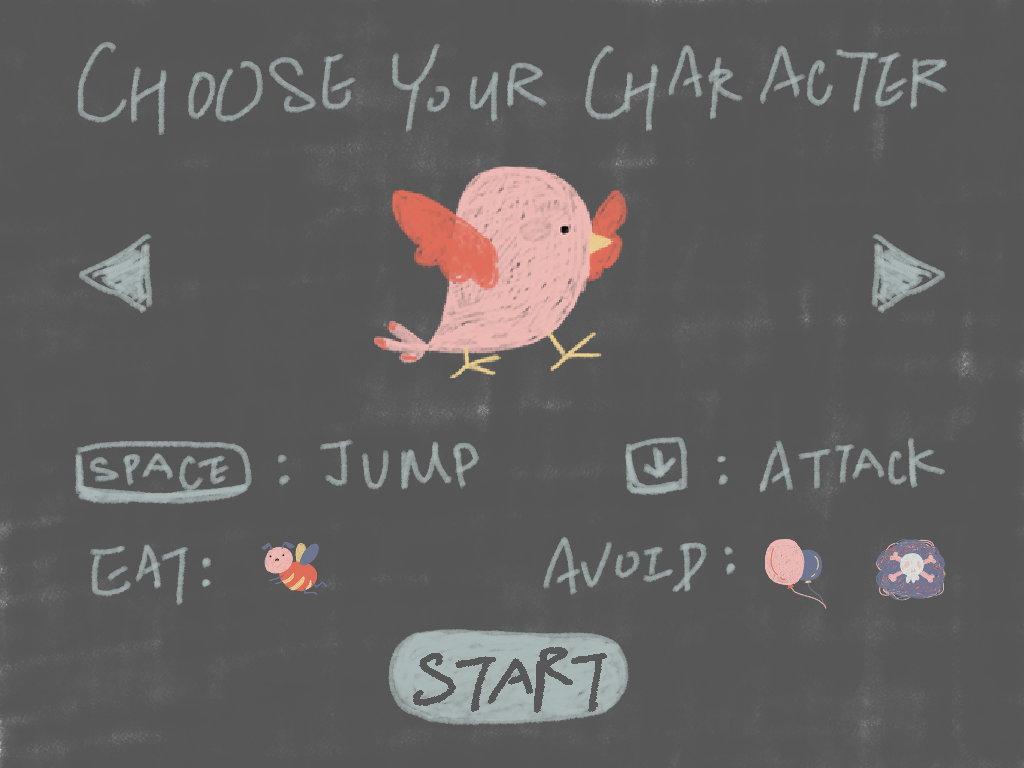 CHOOSE YOUR CHARACTER
SPACE : JUMP
↓ : ATTACK
EAT:
AVOID:
START